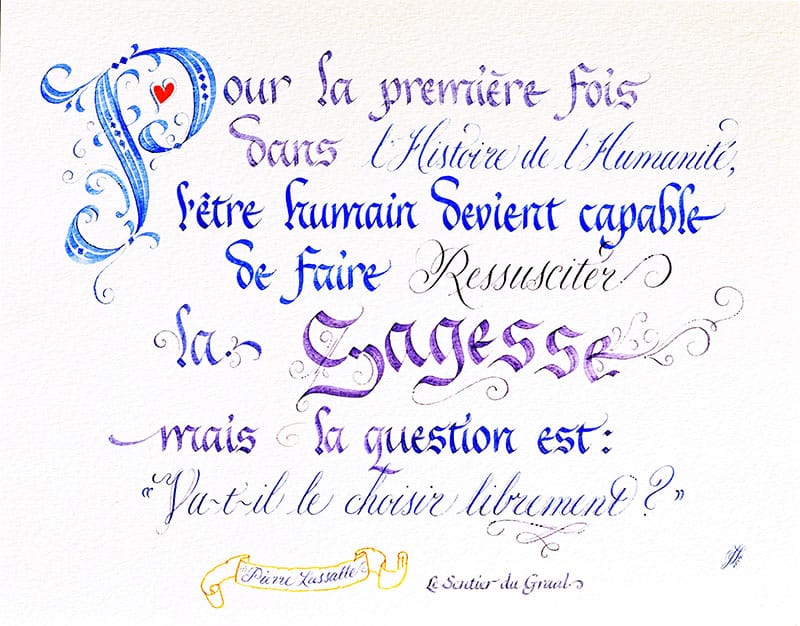 Pour la première fois
dans l'Histoire de l'Humanité,
l'être humain devient capable
de faire Ressusciter
la Sagesse
mais la question est :
“Va-t-il le choisir librement ?”
Pierre Lassalle
Le Sentier du Graal